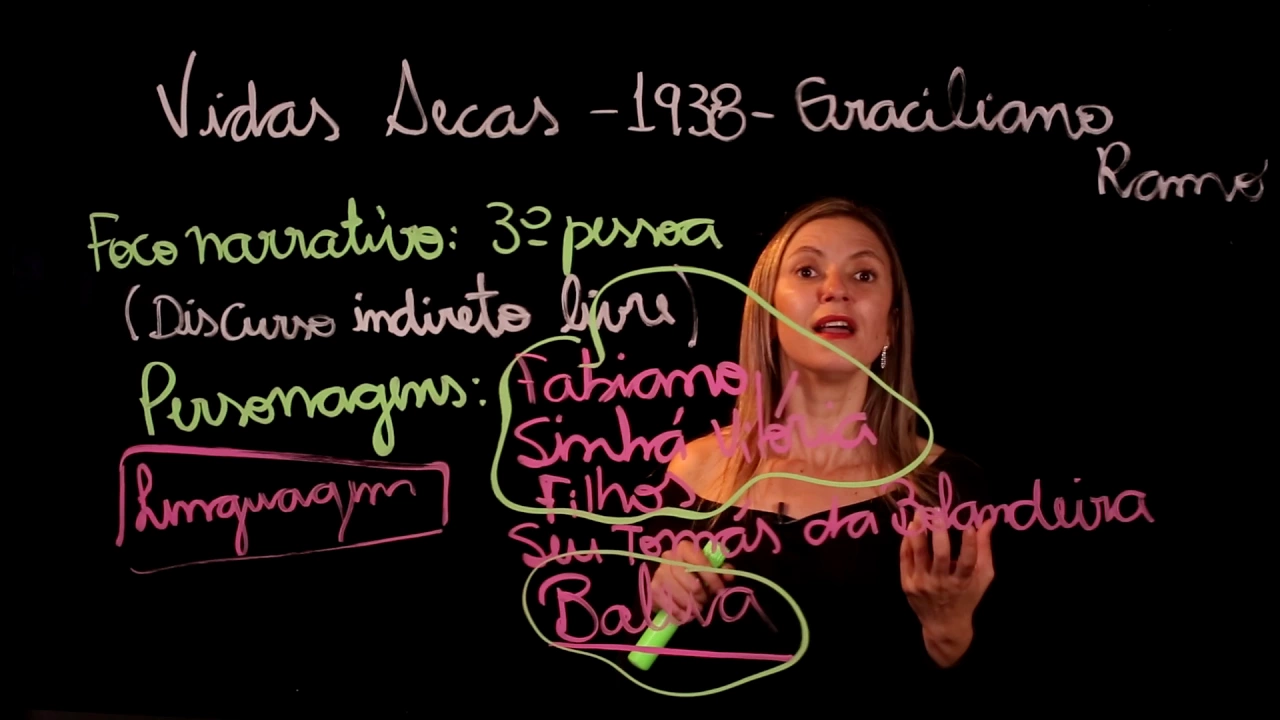 Vidas Secas - 1938 - Graciliano
Ramos
Foco narrativo: 3º pessoa
(Discurso indireto livre)
Personagens: Fabiano
Sinhá Vitória
Filhos
Seu Tomás da Bolandeira
Baleia
Linguagem